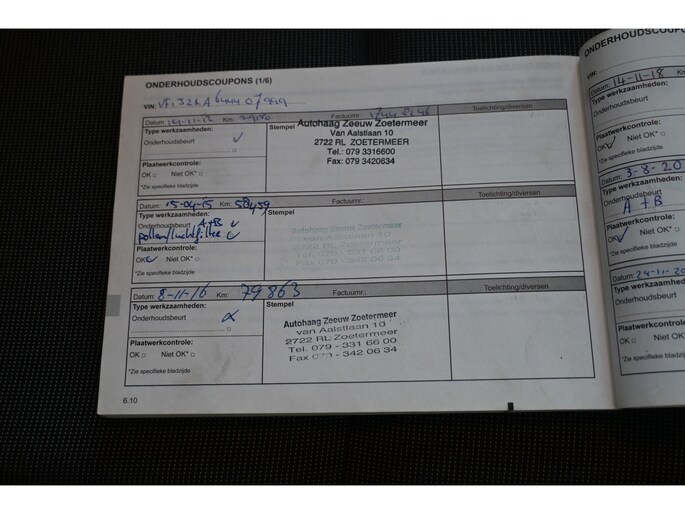 ONDERHOUDSCOUPONS (1/6)
VIN:
Datum: Km: Factuurnr.: Toelichting/diversen
Type werkzaamheden: Stempel
Autohaag Zeeuw Zoetermeer
Van Aalstlaan 10
2722 RL ZOETERMEER
Tel.: 079 3316600
Fax: 079 3420634
Onderhoudsbeurt
Plaatwerkcontrole:
OK Niet OK*
*Zie specifieke bladzijde
Datum: 15-04-15 Km: 58459 Factuurnr.: Toelichting/diversen
Type werkzaamheden: Stempel
Onderhoudsbeurt A+B
pollen/luchtfilter
Autohaag Zeeuw Zoetermeer
van Aalstlaan 10
2722 RL Zoetermeer
Tel. 079 - 331 66 00
Fax 079 - 342 06 34
Plaatwerkcontrole:
OK Niet OK*
*Zie specifieke bladzijde
Datum: 8-11-16 Km: 79863 Factuurnr.: Toelichting/diversen
Type werkzaamheden: Stempel
Onderhoudsbeurt
Autohaag Zeeuw Zoetermeer
van Aalstlaan 10
2722 RL Zoetermeer
Tel. 079 - 331 66 00
Fax 079 - 342 06 34
Plaatwerkcontrole:
OK Niet OK*
*Zie specifieke bladzijde
6.10
ONDERHOUDSCOU
VIN:
Datum: 14-11-18 Km
Type werkzaamheden:
Onderhoudsbeurt
Plaatwerkcontrole:
OK Niet OK*
*Zie specifieke bladzijde
Datum: 3-8-20
Type werkzaamheden:
Onderhoudsbeurt
A+B
Plaatwerkcontrole:
OK Niet OK*
*Zie specifieke bladzijde
Datum: 24-11-20
Type werkzaamheden:
Onderhoudsbeurt
Plaatwerkcontrole:
OK Niet OK*
*Zie specifieke bladzijde